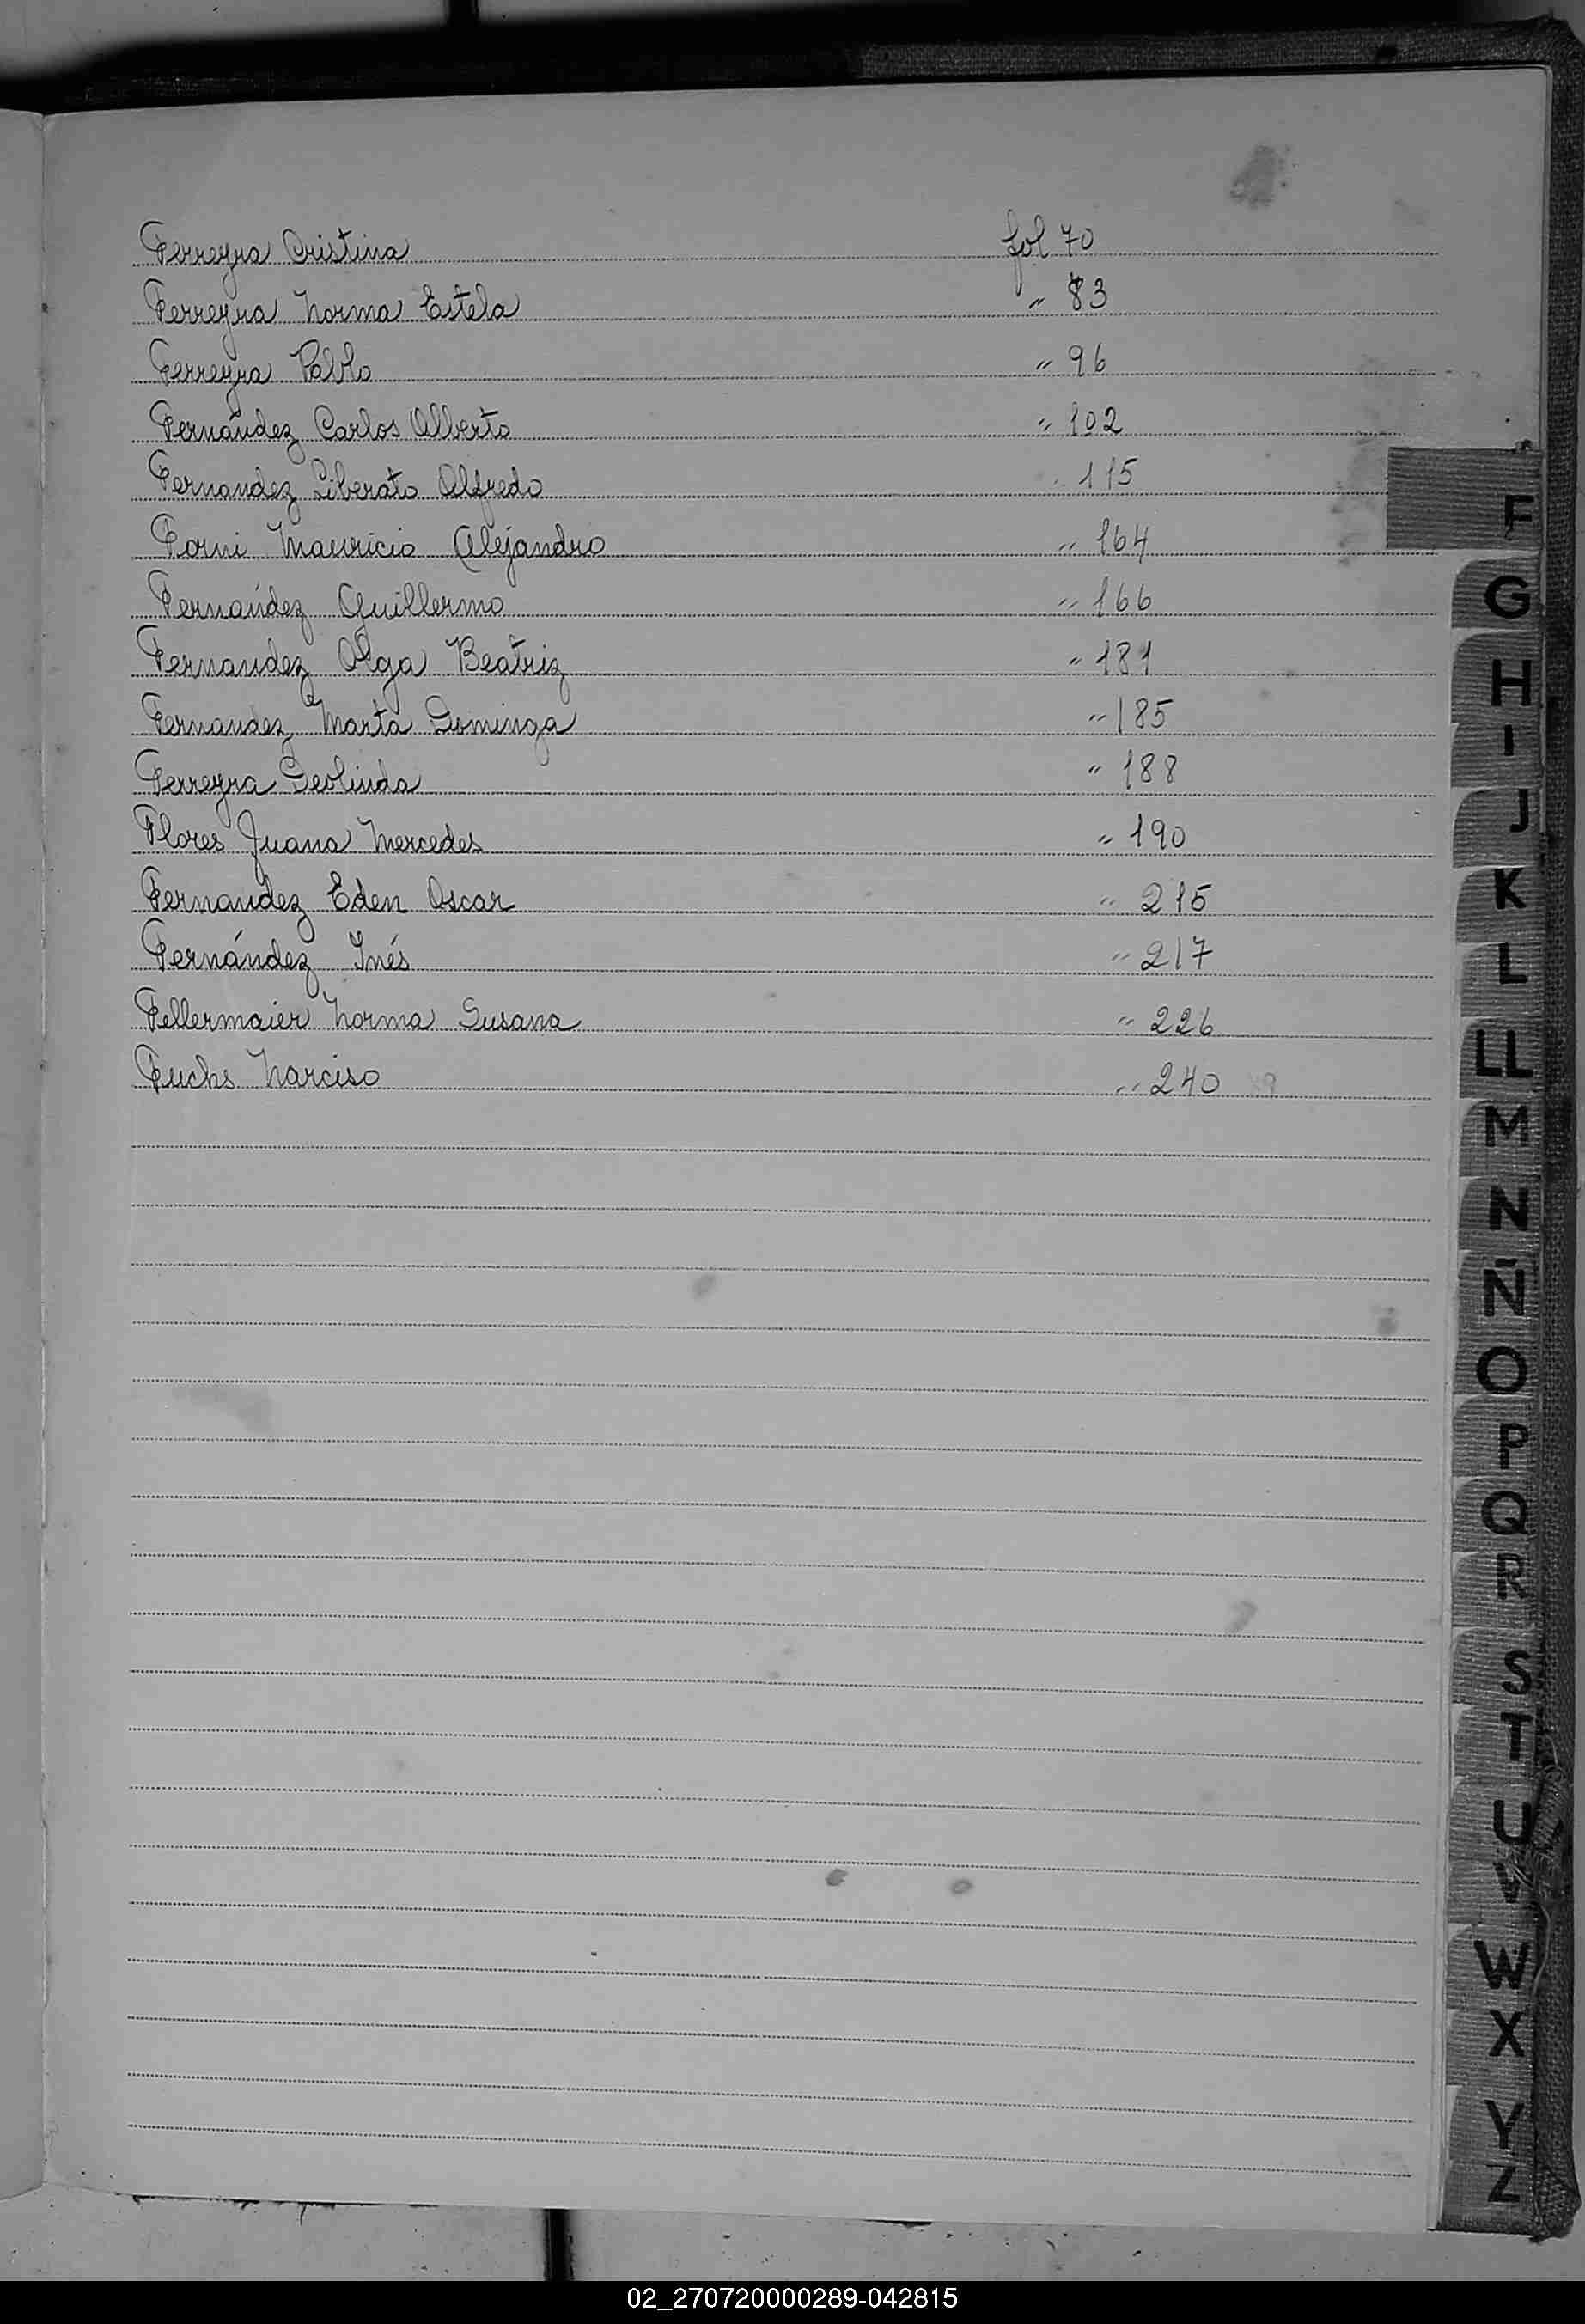 Ferreyra Cristina fol 70
Ferreyra Norma Estela " 83
Ferreyra Pablo " 96
Fernández Carlos Alberto " 102
Fernandez Liberato Alfredo " 115
Forni Mauricio Alejandro " 164
Fernández Guillermo " 166
Fernandez Olga Beatriz " 181
Fernandez Marta Dominga " 185
Ferreyra Deolinda " 188
Flores Juana Mercedes " 190
Fernandez Eden Oscar " 215
Fernández Inés " 217
Fellermaier Norma Susana " 226
Fuchs Narciso " 240
F
G
H
I
J
K
L
LL
M
N
Ñ
O
P
Q
R
S
T
U
V
W
X
Y
Z
02_270720000289-042815